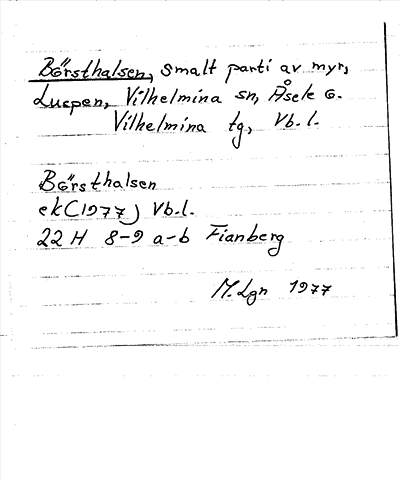 Börsthalsen, smalt parti av myr,
Luspen, Vilhelmina sn, Åsele G.
Vilhelmina tg, Vb. l.
Börsthalsen
ek (1977) Vb. l.
22 H 8-9 a-b Fianberg
M. Lgn 1977